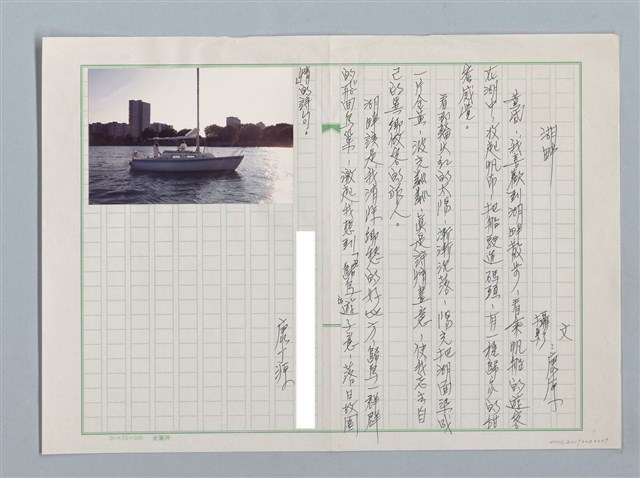 文
攝影：康康
湖畔
黃昏，我喜歡到湖畔散步，看乘帆船的遊客
在湖中，收起帆布，把船駛進碼頭，有一種歸家的甜
蜜感覺。
看那輪火紅的太陽，漸漸沉落，陽光把湖面染成
一片金黃，波光粼粼，真是詩情畫意，使我忘去自
己的異鄉做客的旅人。
湖畔該是我消除鄉愁的好地方，歸鳥一群群
的飛回巢，激起我想到「歸鳥遊子意，落日故園
情的詩句。